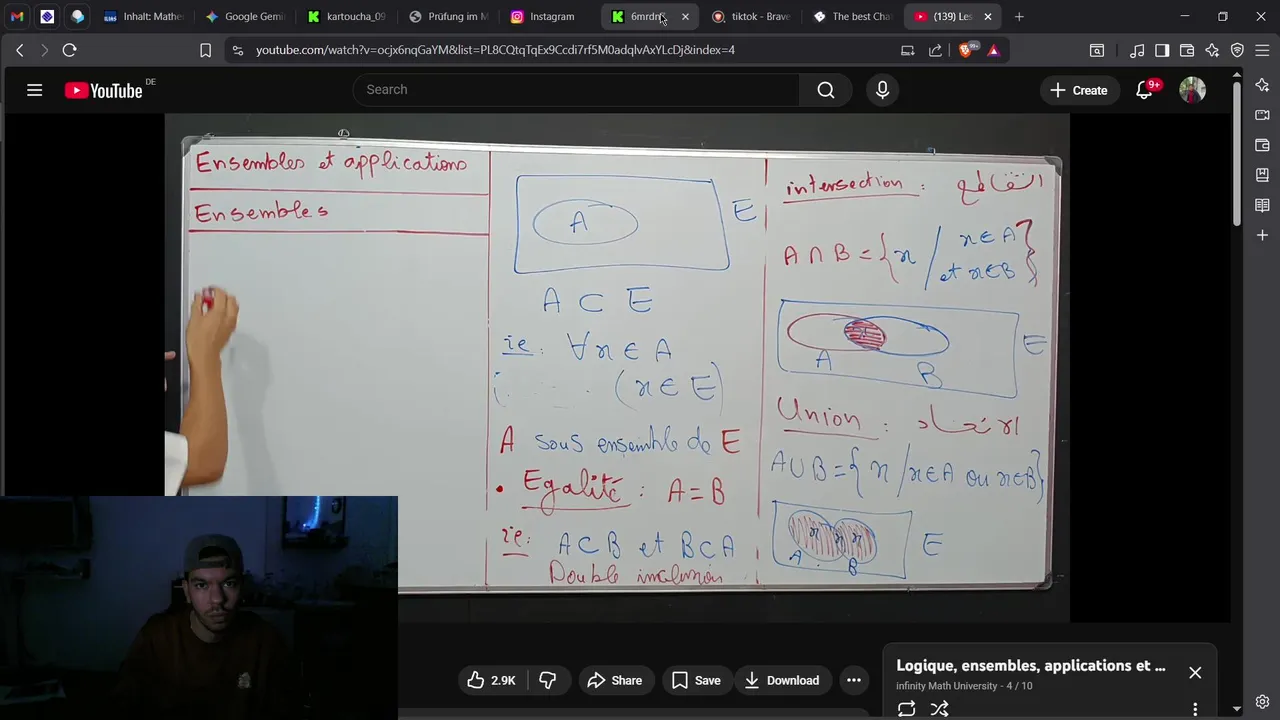 Inhalt: Mathe
Google Gemini
kartoucha_09
Prüfung im M
Instagram
6mrdn
tiktok - Brave
The best Cha
(139) Les
youtube.com/watch?v=ocjx6nqGaYM&list=PL8CQtqTqEx9Ccdi7rf5M0adqlvAxYLcDj&index=4
99+
YouTube DE
Search
Create
9+
Ensembles et applications
Ensembles
A
E
A ⊂ E
ie: ∀x ∈ A
(x ∈ E)
A sous ensemble de E
• Egalité : A = B
ie: A ⊂ B et B ⊂ A
Double inclusion
intersection : التقاطع
A ∩ B = { x / x ∈ A
et x ∈ B }
E
A
B
Union : الاتحاد
A ∪ B = { x / x ∈ A ou x ∈ B }
x x x
A B
E
2.9K
Share
Save
Download
Logique, ensembles, applications et ...
infinity Math University - 4 / 10